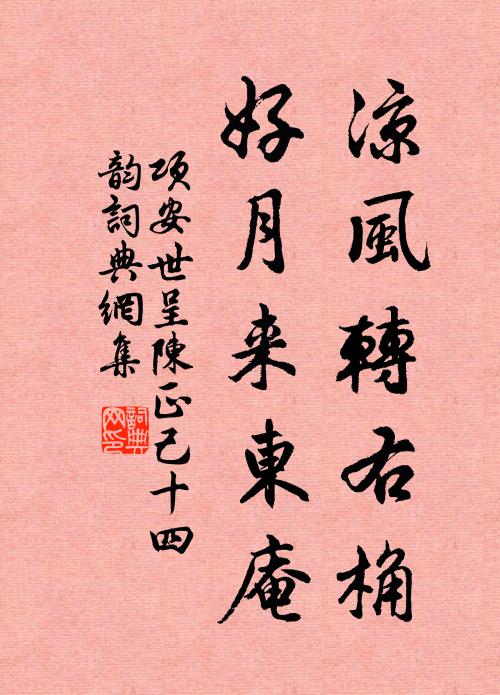 凉風轉右桷
好月来東庵
項安世呈陳正己十四
韵詞典網集
詞典网印